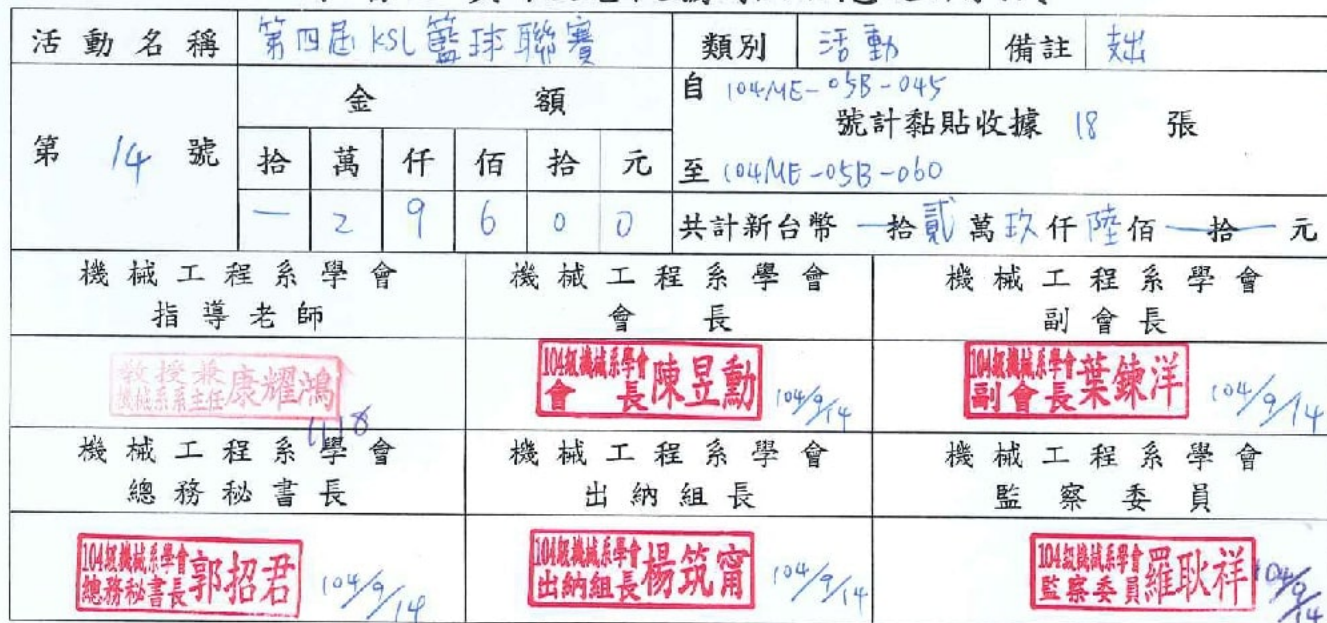 活動名稱 第四屆 KSL 籃球聯賽 類別 活動 備註 支出
第 14 號
金額
拾 萬 仟 佰 拾 元
一 2 9 6 0 0
自 104ME-05B-045
號計黏貼收據 18 張
至 104ME-05B-060
共計新台幣 一拾貳萬玖仟陸佰一拾一元
機械工程系學會 機械工程系學會 機械工程系學會
指導老師 會長 副會長
教授兼機械系系主任康耀鴻 104級機械系學會會長陳昱勳 104/9/14 104級機械系學會副會長葉鍊洋 104/9/14
1118
機械工程系學會 機械工程系學會 機械工程系學會
總務秘書長 出納組長 監察委員
104級機械系學會總務秘書長郭招君 104/9/14 104級機械系學會出納組長楊筑甯 104/9/14 104級機械系學會監察委員羅耿祥 104/9/14